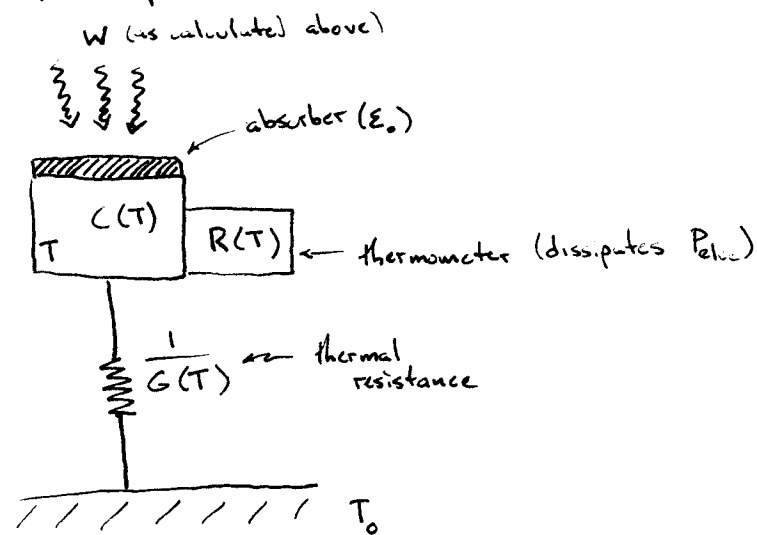 W (as calculated above)
absorber (ε₀)
C(T)
T
R(T)
thermometer (dissipates Pelec)
1
G(T)
thermal
resistance
T₀